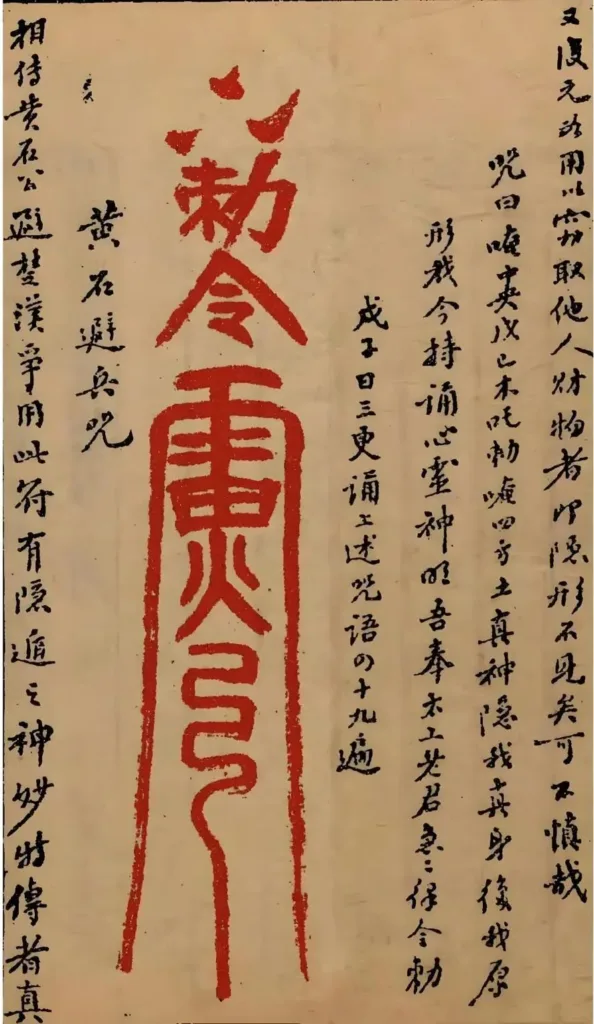 又復元用以窃取他人财物者即隐形不見矣可不慎哉
咒曰唵中央戊己木吒勅唵四方土真神隐我真身復我原
形我今持誦心靈神明吾奉太上老君急々律令勅
戊子日三更誦上述咒語四十九遍
勅令
黄石避兵咒
相傳黄石公避楚漢爭用此符有隐遁之神妙特傳者真